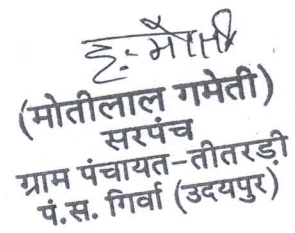 ह:- मोती
(मोतीलाल गमेती)
सरपंच
ग्राम पंचायत-तीतरड़ी
पं.स. गिर्वा (उदयपुर)